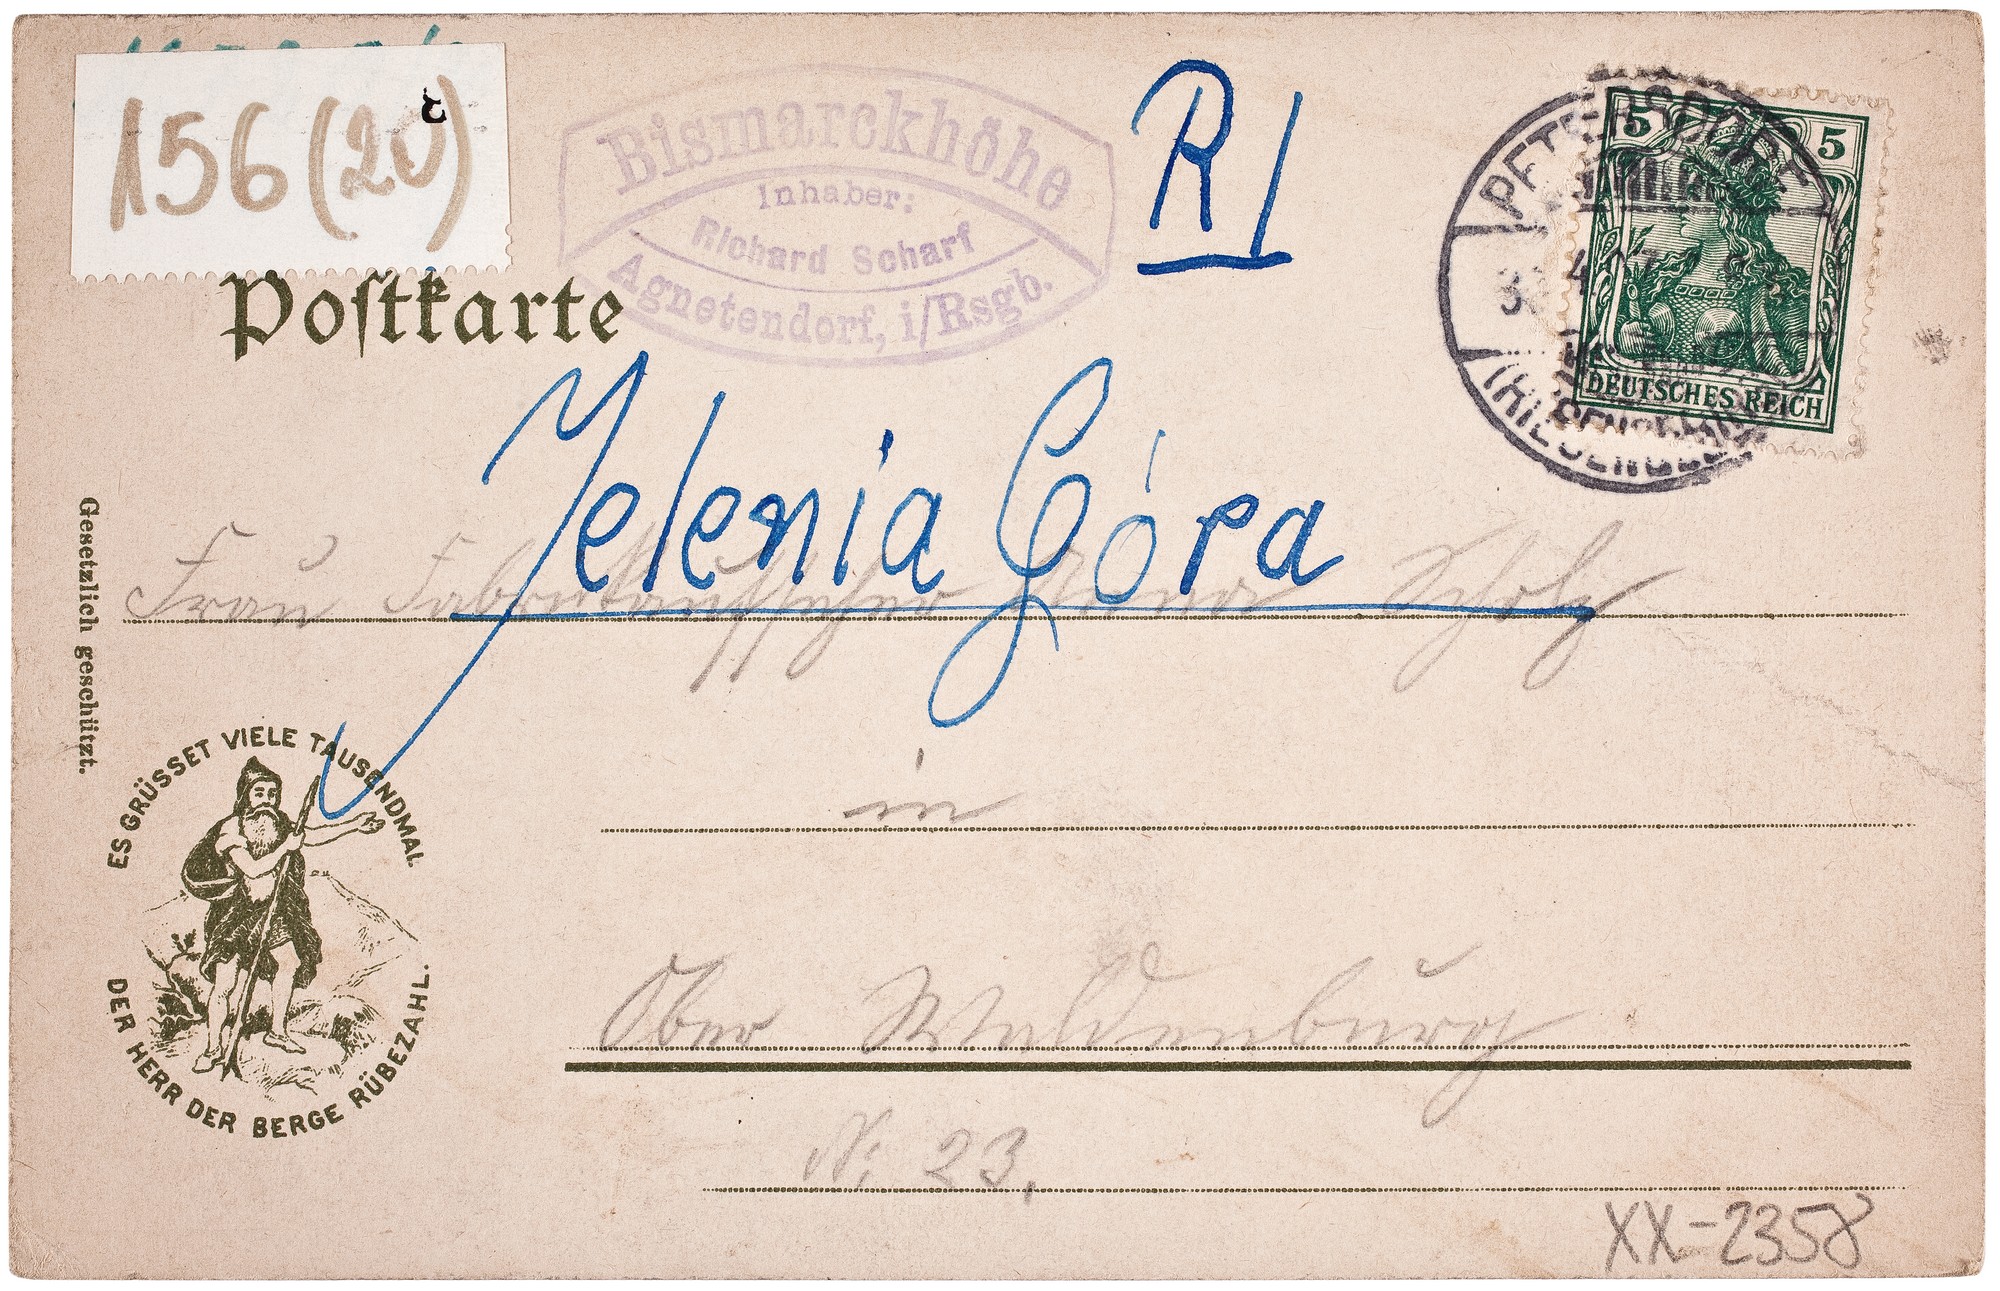 156 (20)
Bismarckhöhe
Inhaber:
Richard Scharf
Agnetendorf, i/Rsgb.
R1
PETERSDORF
(RIESENGEB
5 5
DEUTSCHES REICH
Postkarte
Jelenia Góra
Frau Scholz
in
Ober Waldenburg
N: 23.
Gesetzlich geschützt.
ES GRÜSSET VIELE TAUSENDMAL
DER HERR DER BERGE RÜBEZAHL.
XX-2358